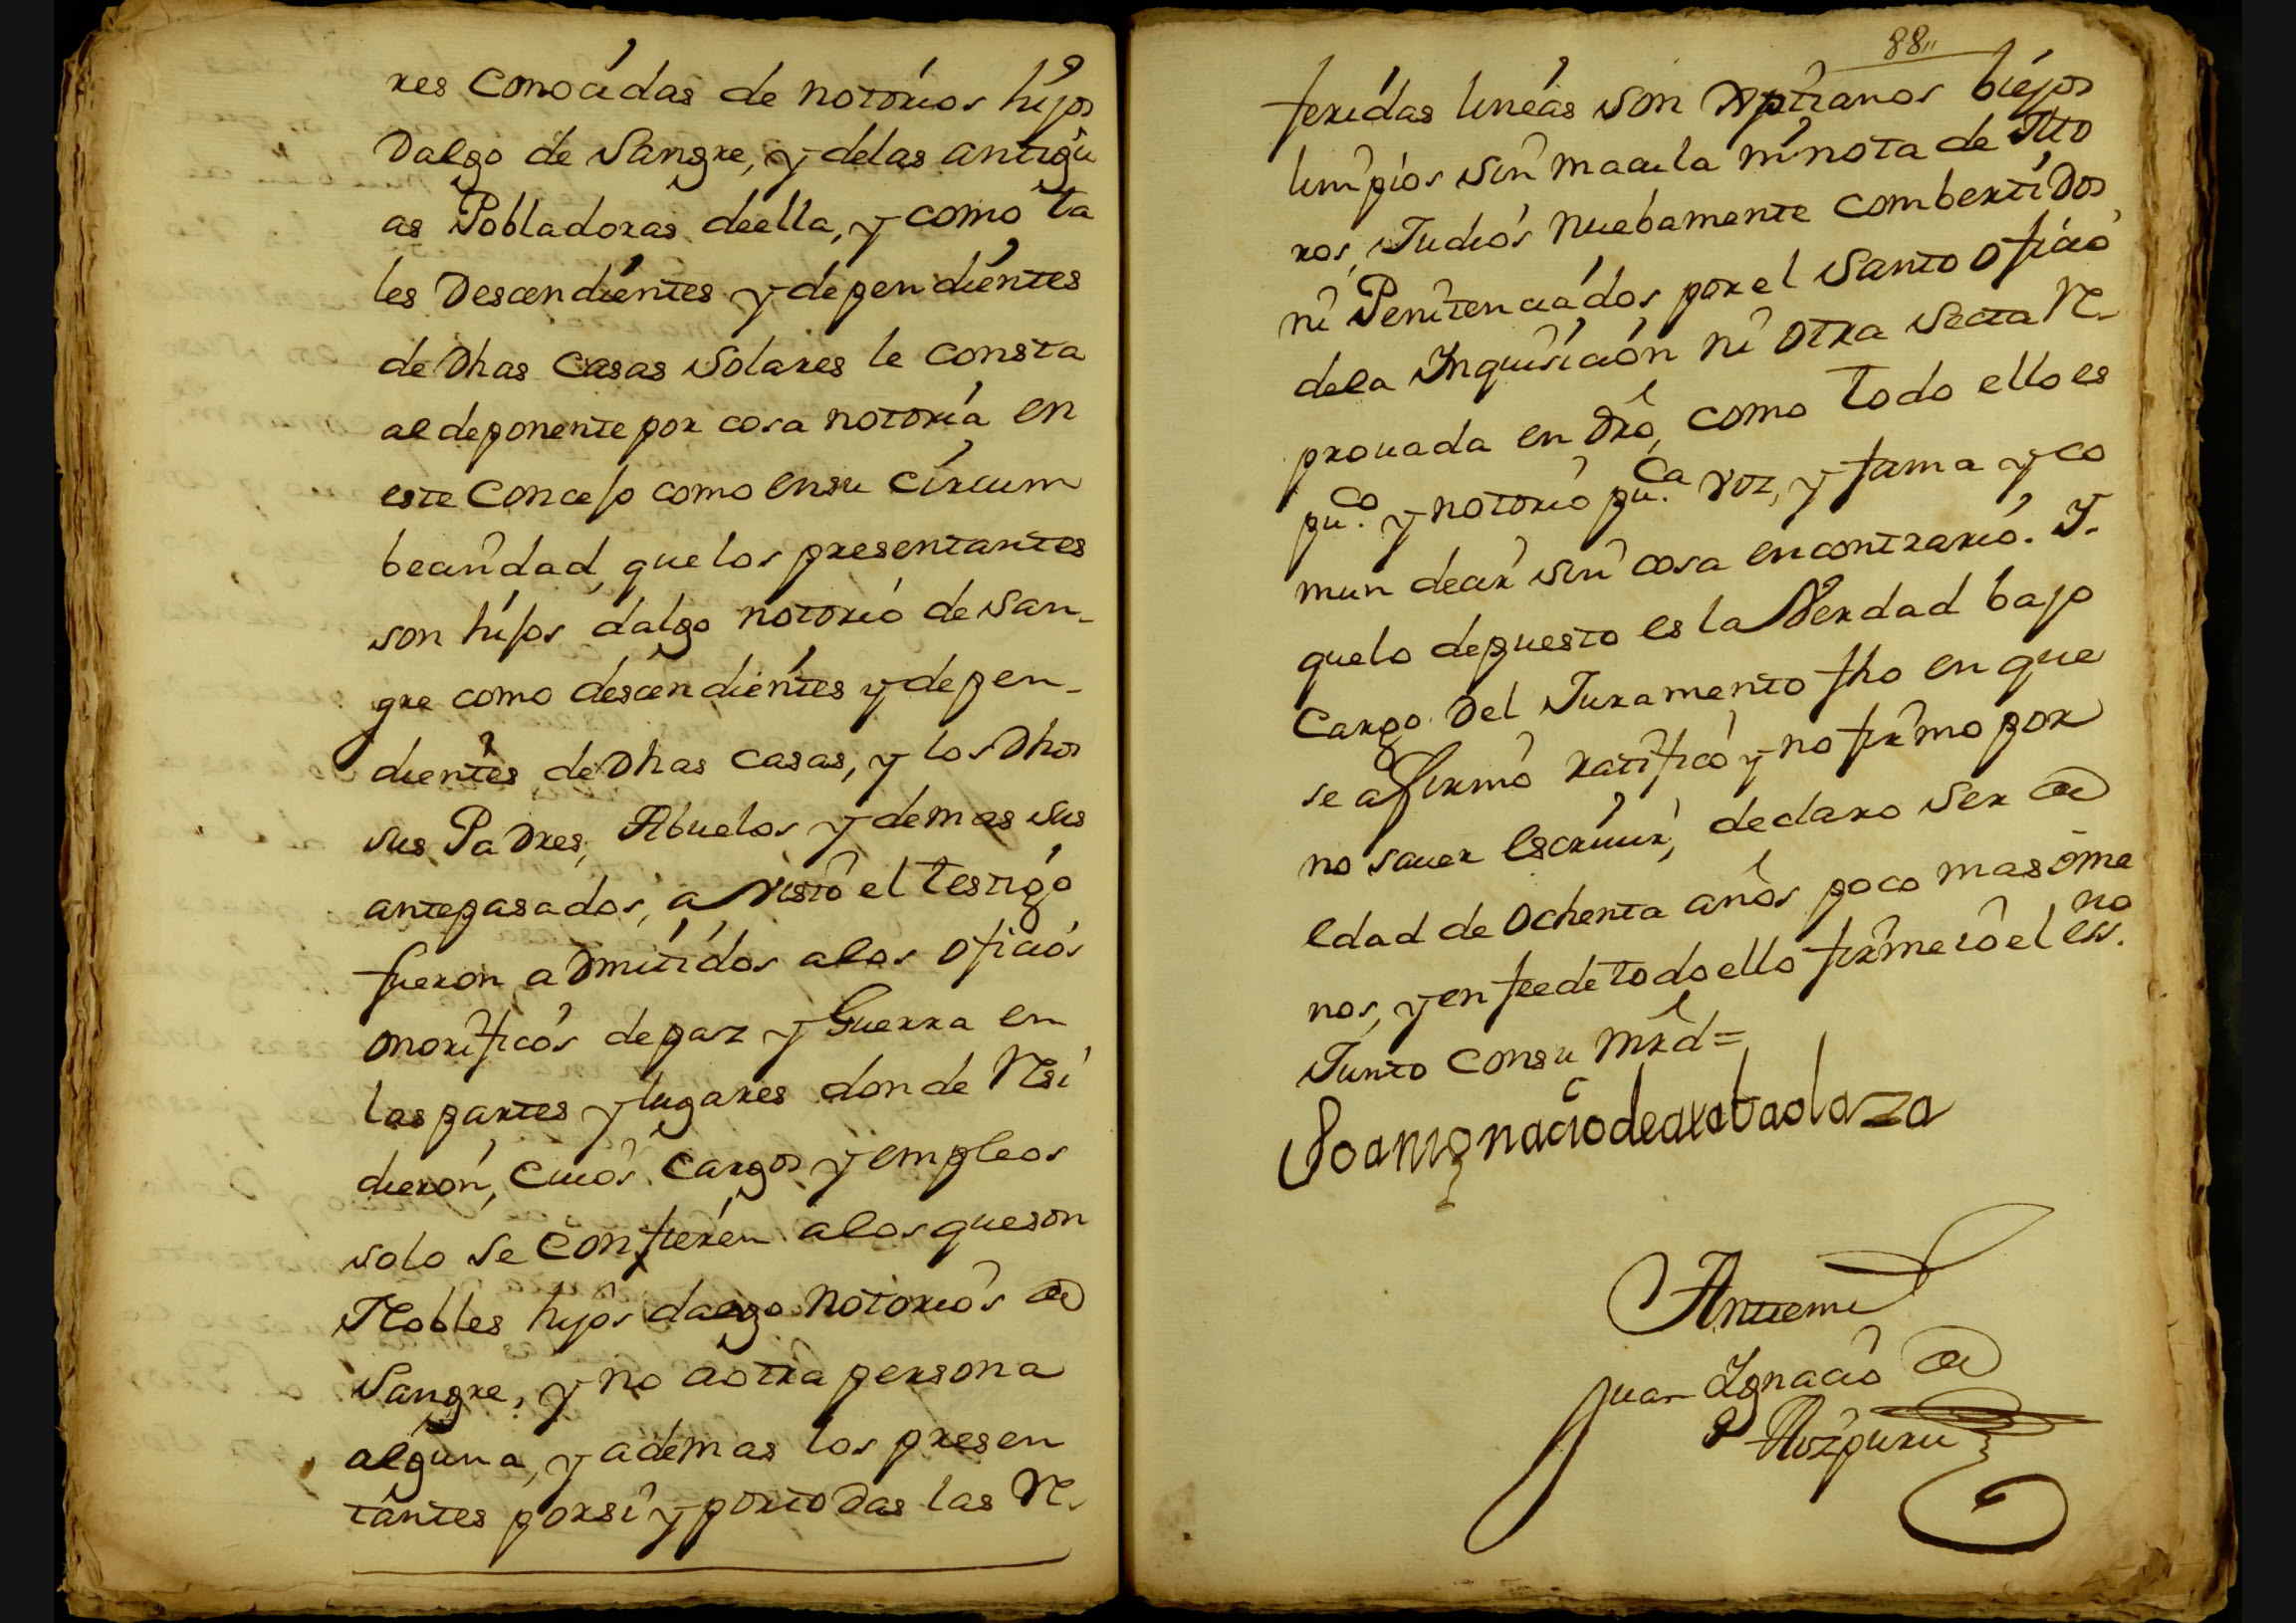 res conocidas de notorios hijos
Dalgo de Sangre, y delas antigu
as Pobladoras deella, y como ta
les Descendientes y dependientes
de Dhas Casas Solares le consta
al deponente por cosa notoria en
este Concejo como ensu circum
becindad, que los presentantes
son hijos dalgo notorio de San-
gre como descendientes y depen-
dientes de Dhas casas, y los Dhos
sus Padres, Abuelos y demas sus
antepasados, a visto el testigo
fueron admitidos alos oficios
onorificos depaz y Guerra en
las partes y lugares donde Resi
dieron, cuios cargos y empleos
solo se confieren alos queson
Nobles hijos dalgo notorios de
Sangre, y no aotra persona
alguna, y ademas los presen
tantes porsi y portodas las Re-
88
feridas lineas son Xptianos biejos
limpios sin macula ni nota de Mo
ros, Judios nuebamente combertidos
ni Penitenciados por el Santo oficio
dela Inquisicion ni otra Secta Re-
prouada en Dro, como todo ello es
pu.co y notorio pu.ca voz, y fama y co
mun decir sin cosa encontrario. Y.
quelo depuesto es la Verdad bajo
Cargo Del Juramento fho en que
se afirmo ratifico y no firmo por
no sauer escriuir, declaro ser de
edad de ochenta años poco mas ome
nos, y en feede todo ello firme io el ess.no
Junto consu mrd=
Joanignaciodearabaolaza
Antemi
Juan Ignacio de
Aozpuru